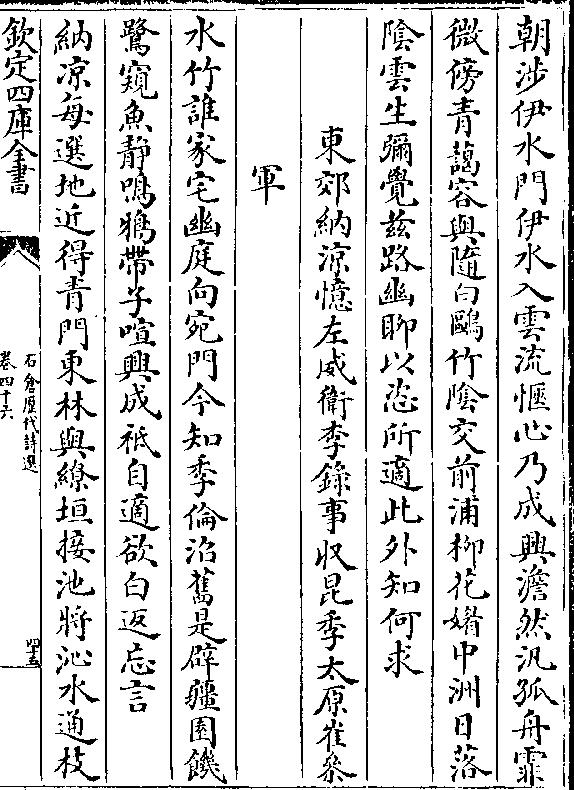 朝涉伊水門伊水入雲流愜心乃成興澹然汎孤舟霏
微傍青藹容與隨白鷗竹陰交前浦柳花媚中洲日落
陰雲生彌覺兹路幽聊以恣所適此外知何求
東郊納涼憶左威衛李錄事收昆季太原崔叅
軍
水竹誰家宅幽庭向宛門今知季倫沼舊是辟疆園饑
鷺窺魚静鳴鴉帶子喧興成祗自適欲白返忘言
納凉每選地近得青門東林與繚垣接池將沁水通枝
欽定四庫全書
石倉歷代詩選
卷四十六
四十五